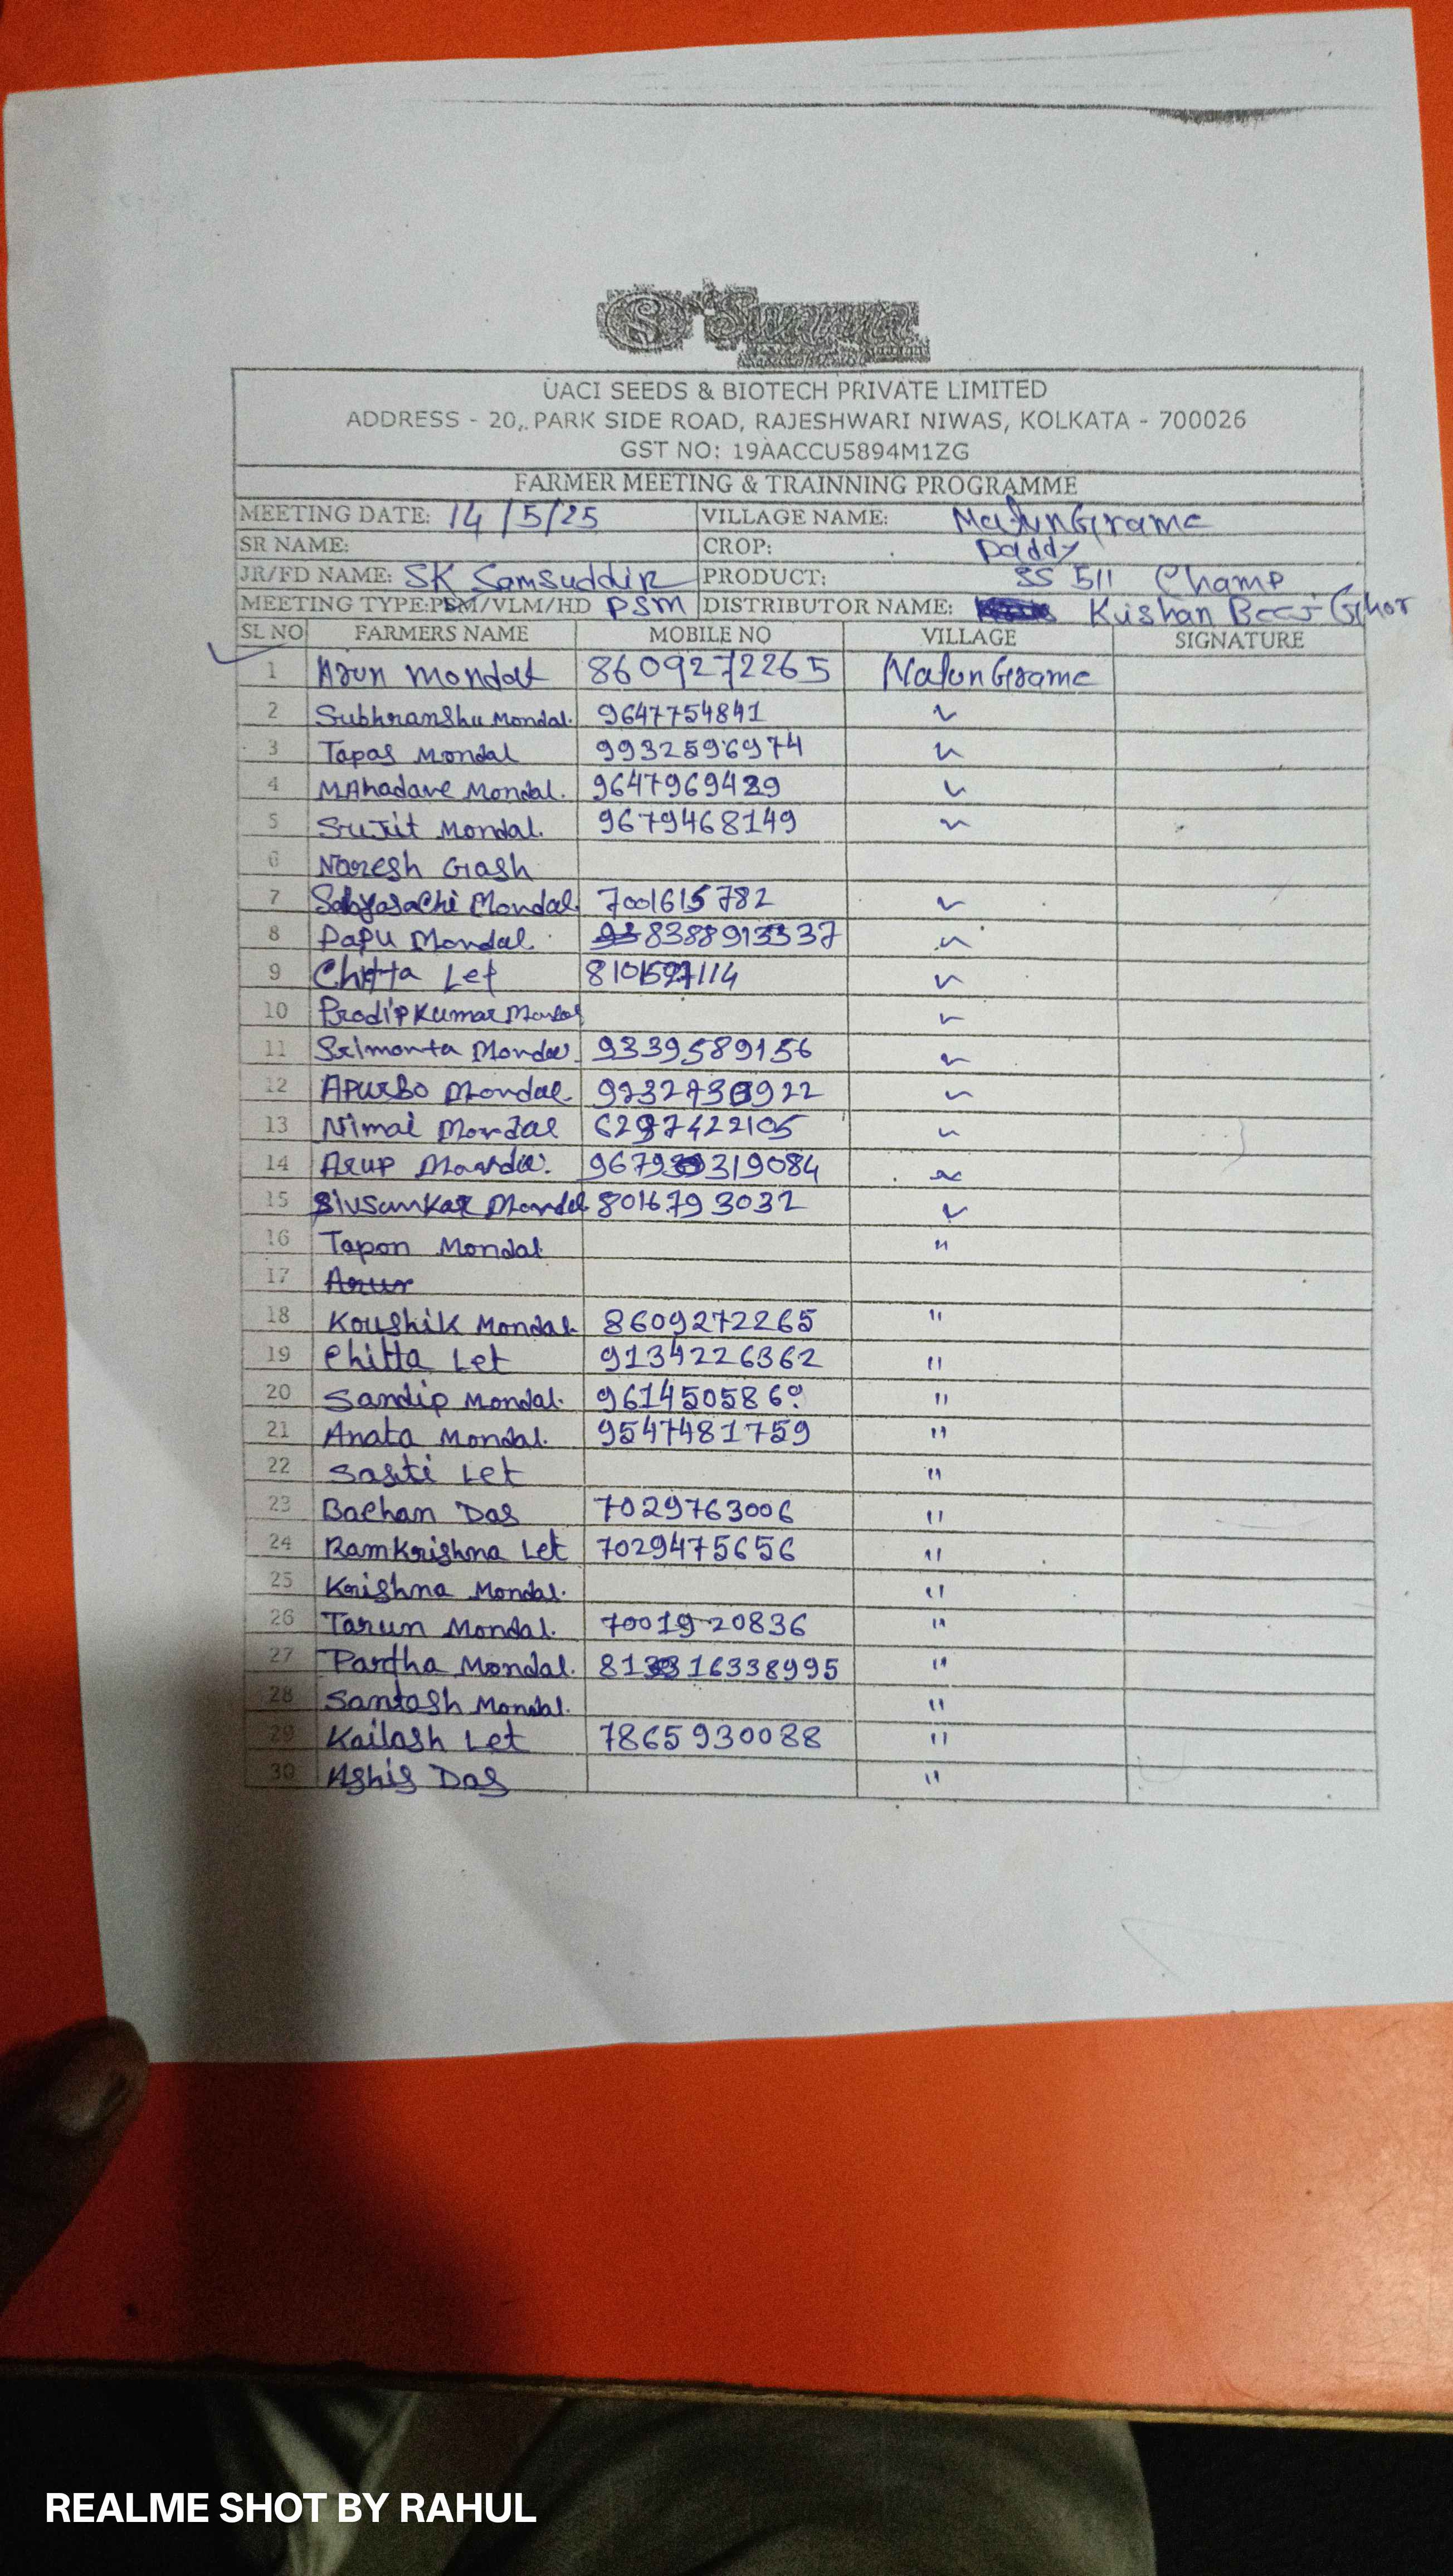 UACI SEEDS & BIOTECH PRIVATE LIMITED
ADDRESS - 20, PARK SIDE ROAD, RAJESHWARI NIWAS, KOLKATA - 700026
GST NO: 19AACCU5894M1ZG
FARMER MEETING & TRAINNING PROGRAMME
MEETING DATE: 14/5/25 VILLAGE NAME: NatunGrame
SR NAME: CROP: Paddy
JR/FD NAME: SK Samsuddin PRODUCT: SS 511 Champ
MEETING TYPE:PSM/VLM/HD PSM DISTRIBUTOR NAME: Kishan Beej Ghor
SL NO FARMERS NAME MOBILE NO VILLAGE SIGNATURE
1 Arun Mondal 8609272265 NatunGrame
2 Subhranshu Mondal. 9647754841 "
3 Tapas Mondal 9932596974 "
4 MAhadave Mondal. 9647969429 "
5 Sujit Mondal. 9679468149 "
6 Naresh Gash
7 Sabyasachi Mondal 7001615782 "
8 Papu Mondal. 8388913337 "
9 Chitta Let "
10 Pradip Kumar Mondal "
11 Srimonta Mondal 9339589156 "
12 Apurbo Mondal "
13 Nimai Mondal "
14 Arup Mondal. "
15 Sivsankar Mondal 8016793032 "
16 Tapon Mondal "
17
18 Koushik Mondal. 8609272265 "
19 Chitta Let 9134226362 "
20 Sandip Mondal. 9614505860 "
21 Anata Mondal. 9547481759 "
22 Sasti Let "
23 Bachan Das 7029763006 "
24 RamKrishna Let 7029475656 "
25 Krishna Mondal. "
26 Tarun Mondal. 7001920836 "
27 Partha Mondal. "
28 Santosh Mondal. "
29 Kailash Let 7865930088 "
30 Ashis Das "
REALME SHOT BY RAHUL